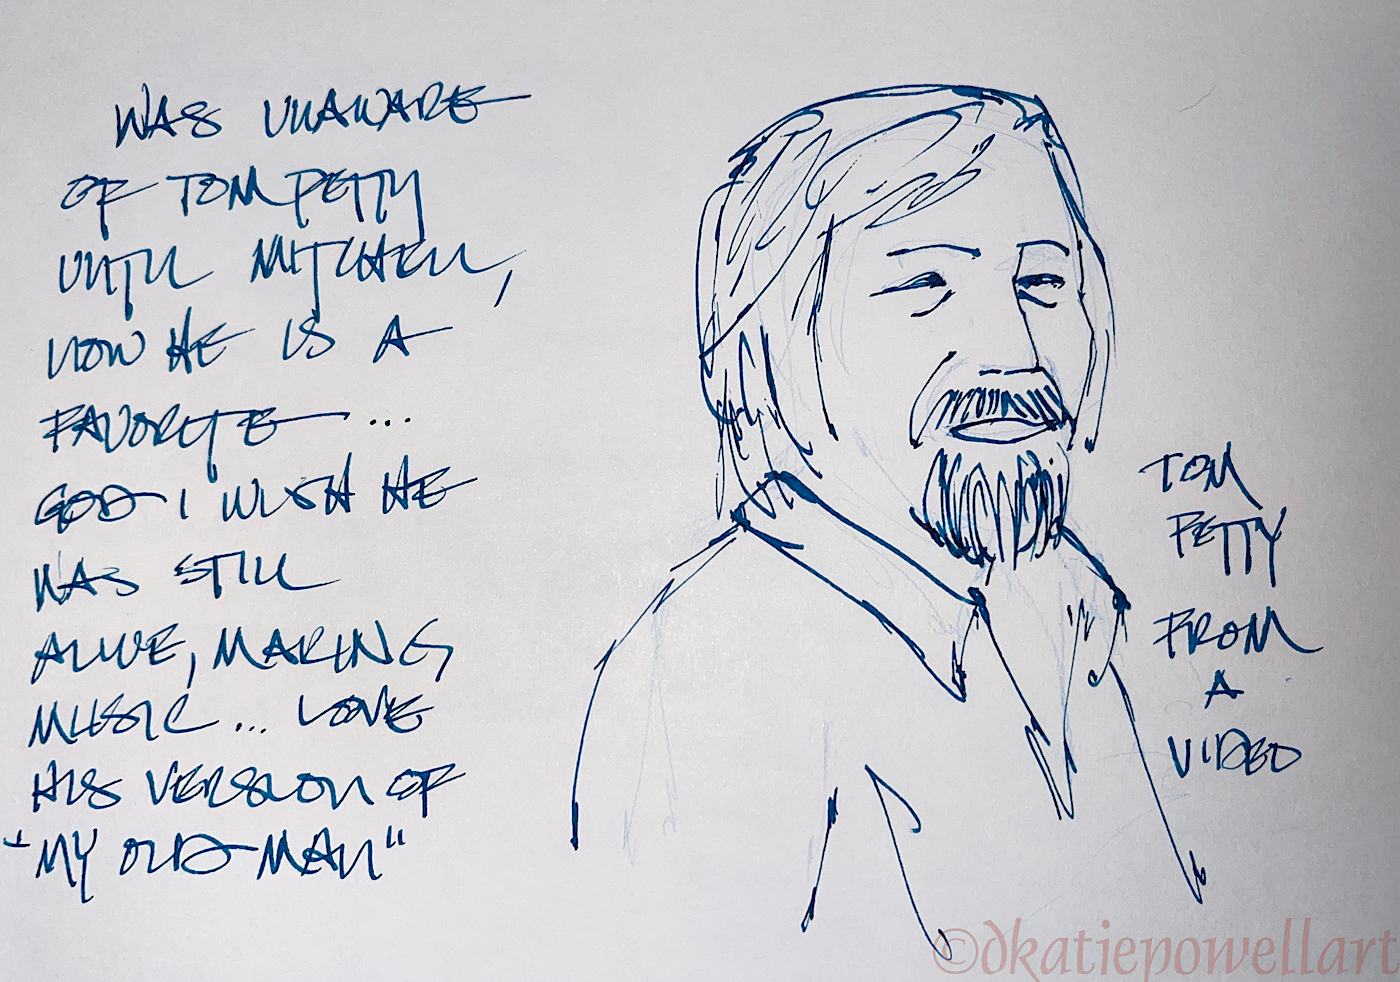 WAS UNAWARE
OF TOM PETTY
UNTIL MITCHELL,
NOW HE IS A
FAVORITE ...
GOD I WISH HE
WAS STILL
ALIVE, MAKING
MUSIC ... LOVE
HIS VERSION OF
"MY OLD MAN"
TOM
PETTY
FROM
A
VIDEO
©dkatiepowellart